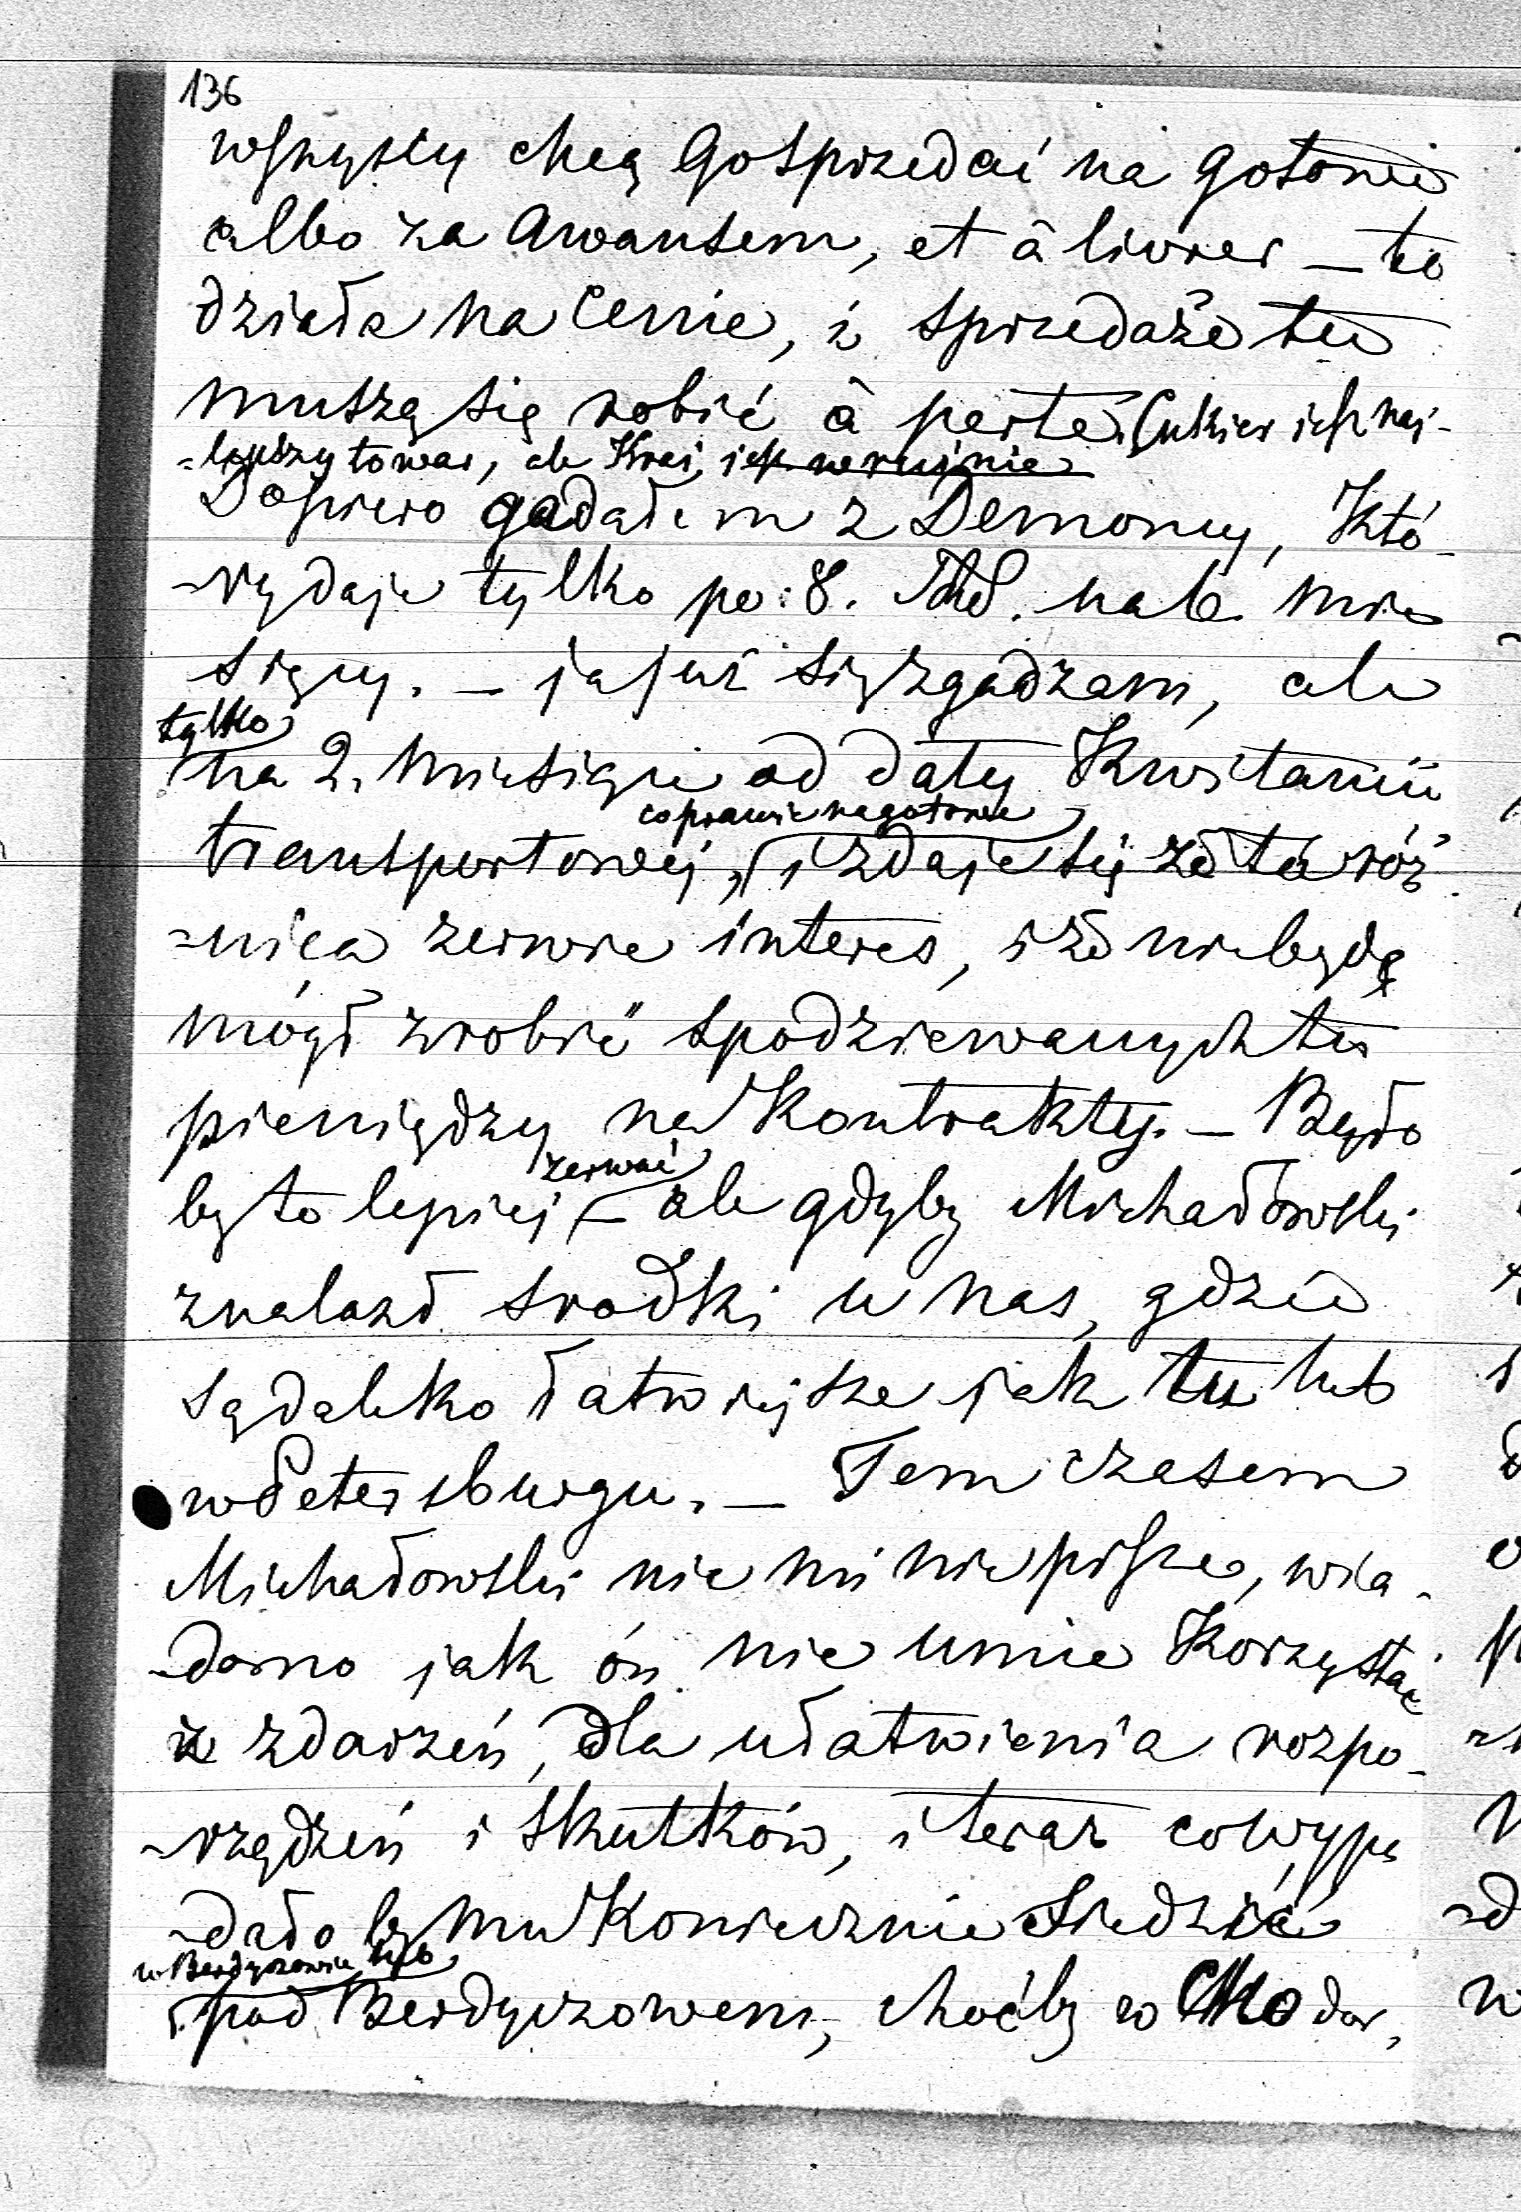 136
wszyscy chcą go sprzedać na gotowie
albo za awansem, et à livrer — to
działa na cenie, i sprzedaże te
muszą się robić à perte. Cukier jest naj-
-lepszy towar, ale Kraj jest w ruinie
Dopiero gadałem z Demoncy, Któ-
-ry daje tylko po 8. na 6. mie
sięcy. — ja już się zgadzam, ale
tylko
na 2. miesiące od daty Kwitancii
co prawie na gotowe
transportowej, i zdaje się że ta róż
-nica zerwie interes, i że nie będę
mógł zrobić spodziewanych tu
pieniędzy na Kontrakty. — Było
zerwać
by to lepiej — ale gdyby Michałowski
znalazł srodki u nas, gdzie
są daleko łatwiejsze jak tu lub
w Petersburgu. — Tem czasem
Michałowski nic mi nie pisze, wia-
-domo jak ón nie umie Korzystać
z zdarzeń, dla ułatwienia rozpo-
-rządzeń i skutków, i teraz co wypa
-dało by mu Koniecznie siedzieć
w Berdyczowie lub
pod Berdyczowem, choćby w Chodor,